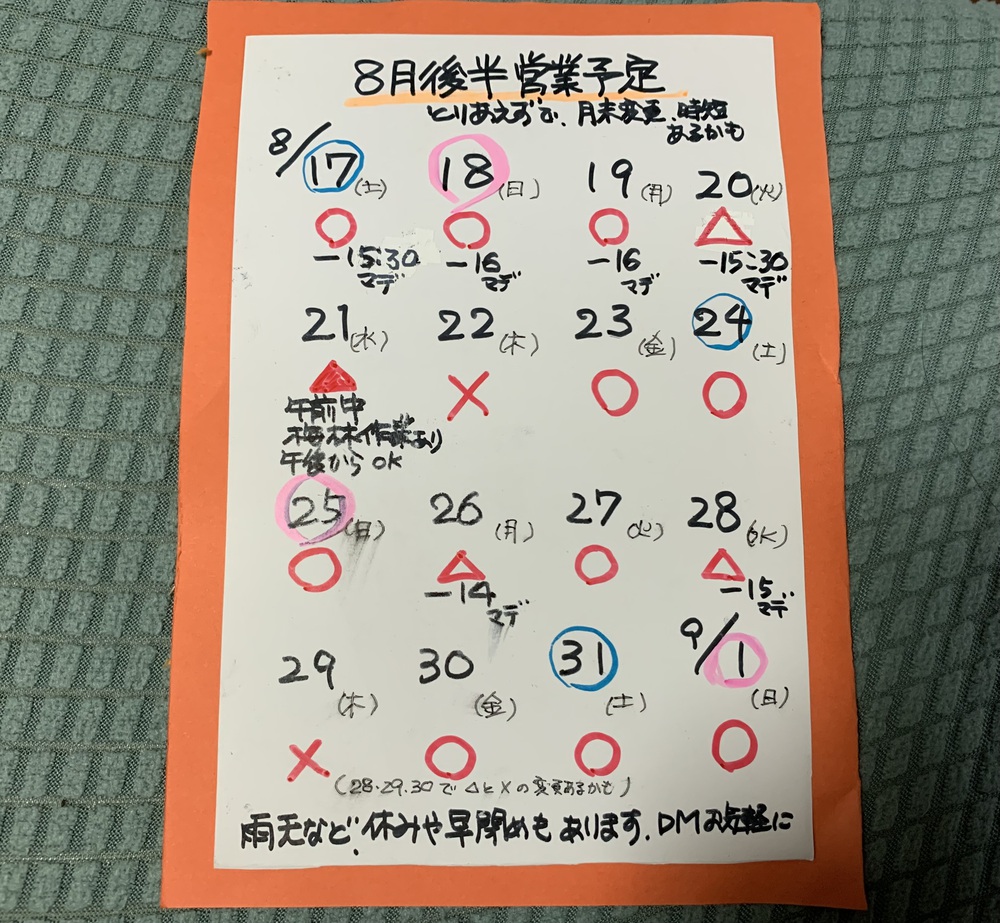 8月後半営業予定
とりあえずが、月末変更、時短
あるかも
8/17(土) 18(日) 19(月) 20(火)
○ ○ ○ △
-15:30 -16 -16 -15:30
マデ マデ マデ マデ
21(水) 22(木) 23(金) 24(土)
▲ × ○ ○
午前中
梅林作業あり
午後からOK
25(日) 26(月) 27(火) 28(水)
○ △ ○ △
-14 -15
マデ マデ
29(木) 30(金) 31(土) 9/1(日)
× ○ ○ ○
(28.29.30で△と×の変更あるかも)
雨天など、休みや早閉めもあります、DMお気軽に